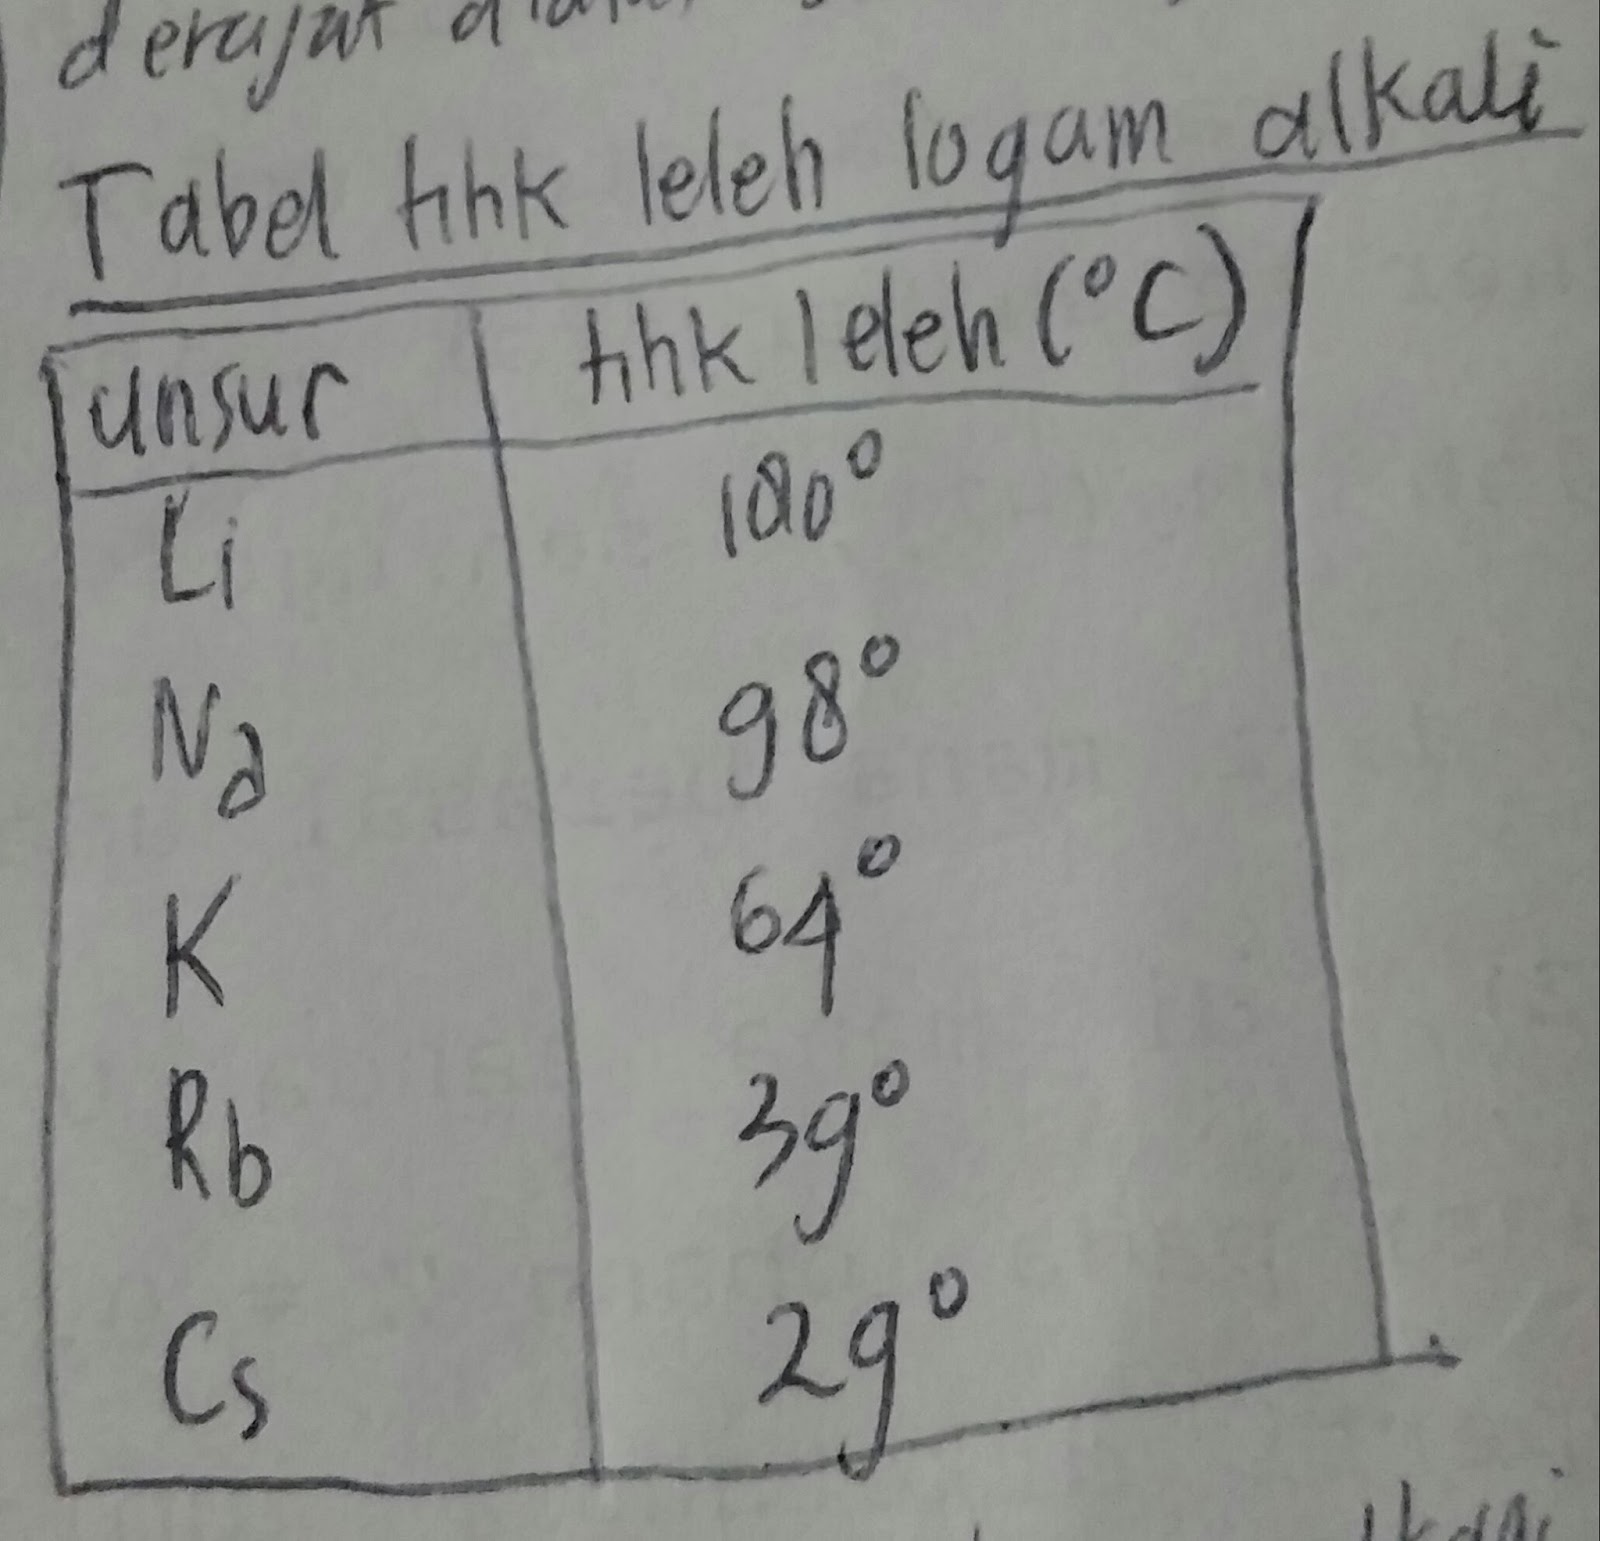 derajat
Tabel titik leleh logam alkali
unsur titik leleh (°C)
Li 180°
Na 98°
K 64°
Rb 39°
Cs 29°